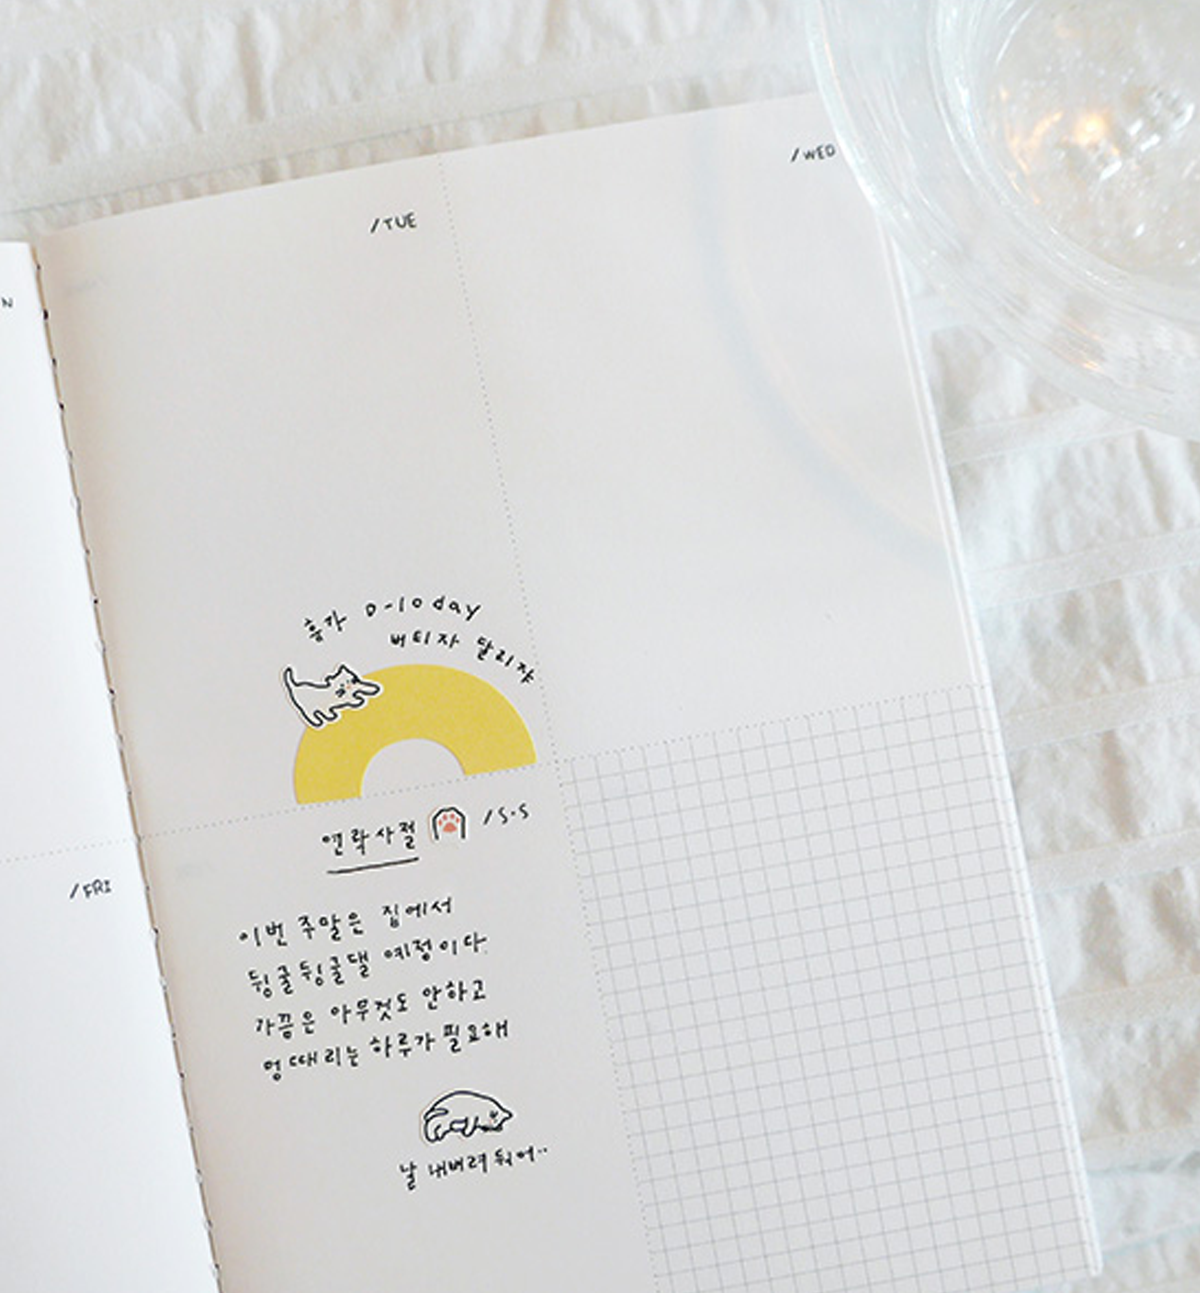 N
/TUE
/WED
휴가 D-10day
버티자 달리자
/FRI
연락사절
/S.S
이번 주말은 집에서
뒹굴뒹굴댈 예정이다.
가끔은 아무것도 안하고
멍때리는 하루가 필요해
날 내버려 둬어..